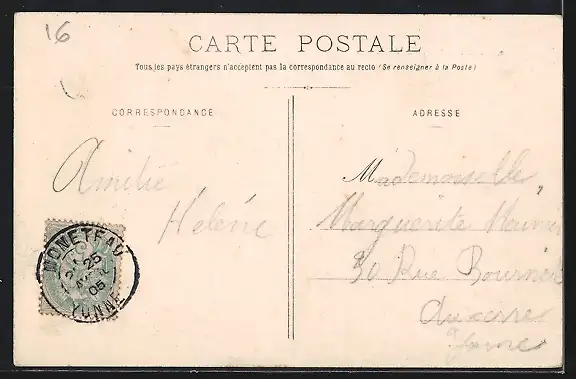 16
CARTE POSTALE
Tous les pays étrangers n'acceptent pas la correspondance au recto (Se renseigner à la Poste)
CORRESPONDANCE
Amitié
Helene
MONETEAU
25
05
YONNE
ADRESSE
Mademoiselle
Marguerite
30 Rue
Auxerre
Yonne